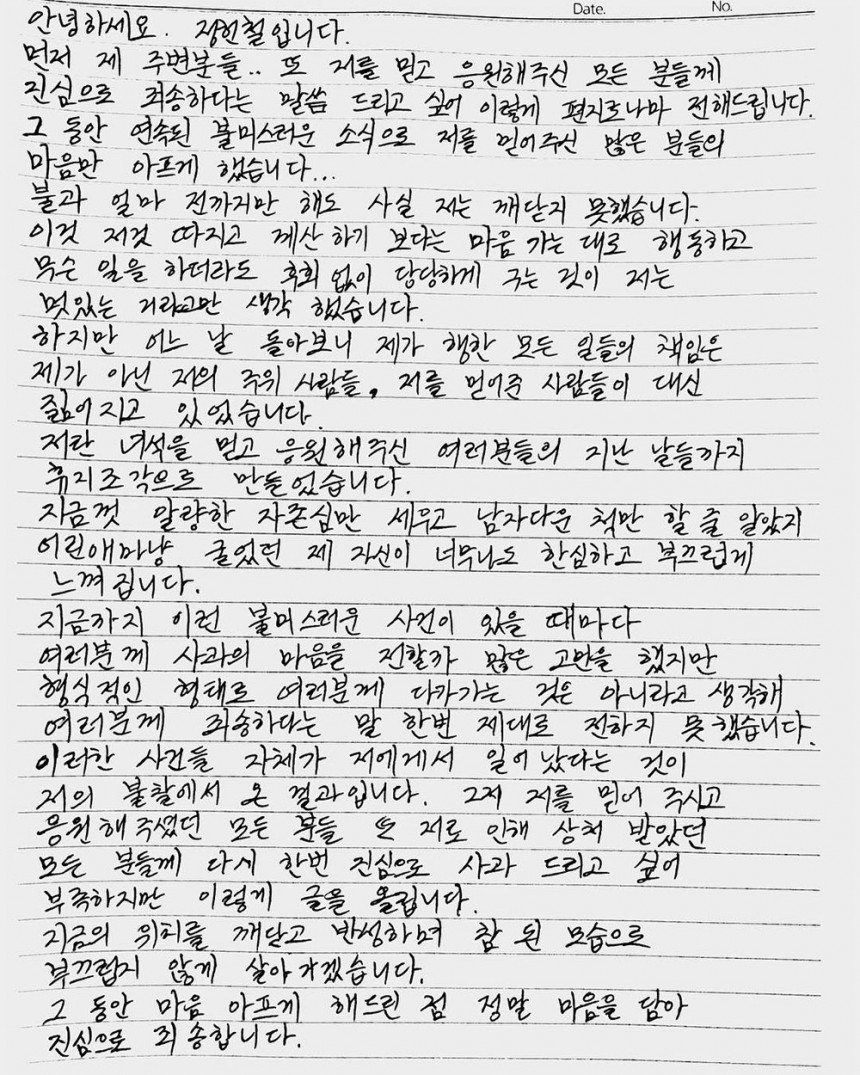 Date. No.
안녕하세요. 정헌철입니다.
먼저 제 주변분들.. 또 저를 믿고 응원해주신 모든 분들께
진심으로 죄송하다는 말씀 드리고 싶어 이렇게 편지로나마 전해드립니다.
그 동안 연속된 불미스러운 소식으로 저를 믿어주신 많은 분들의
마음만 아프게 했습니다...
불과 얼마 전까지만 해도 사실 저는 깨닫지 못했습니다.
이것 저것 따지고 계산 하기 보다는 마음 가는 대로 행동하고
무슨 일을 하더라도 후회 없이 당당하게 구는 것이 저는
멋있는 거라고만 생각 했습니다.
하지만 어느 날 돌아보니 제가 행한 모든 일들의 책임은
제가 아닌 저의 주위 사람들, 저를 믿어준 사람들이 대신
짊어지고 있었습니다.
저란 녀석을 믿고 응원해주신 여러분들의 지난 날들까지
휴지조각으로 만들었습니다.
지금껏 알량한 자존심만 세우고 남자다운 척만 할 줄 알았지
어린애마냥 굴었던 제 자신이 너무나도 한심하고 부끄럽게
느껴집니다.
지금까지 이런 불미스러운 사건이 있을 때마다
여러분께 사과의 마음을 전할까 많은 고민을 했지만
형식적인 형태로 여러분께 다가가는 것은 아니라고 생각해
여러분께 죄송하다는 말 한번 제대로 전하지 못했습니다.
이러한 사건들 자체가 저에게서 일어났다는 것이
저의 불찰에서 온 결과입니다. 그저 저를 믿어 주시고
응원해주셨던 모든 분들 또 저로 인해 상처 받았던
모든 분들께 다시 한번 진심으로 사과 드리고 싶어
부족하지만 이렇게 글을 올립니다.
지금의 위치를 깨닫고 반성하며 참 된 모습으로
부끄럽지 않게 살아가겠습니다.
그 동안 마음 아프게 해드린 점 정말 마음을 담아
진심으로 죄송합니다.